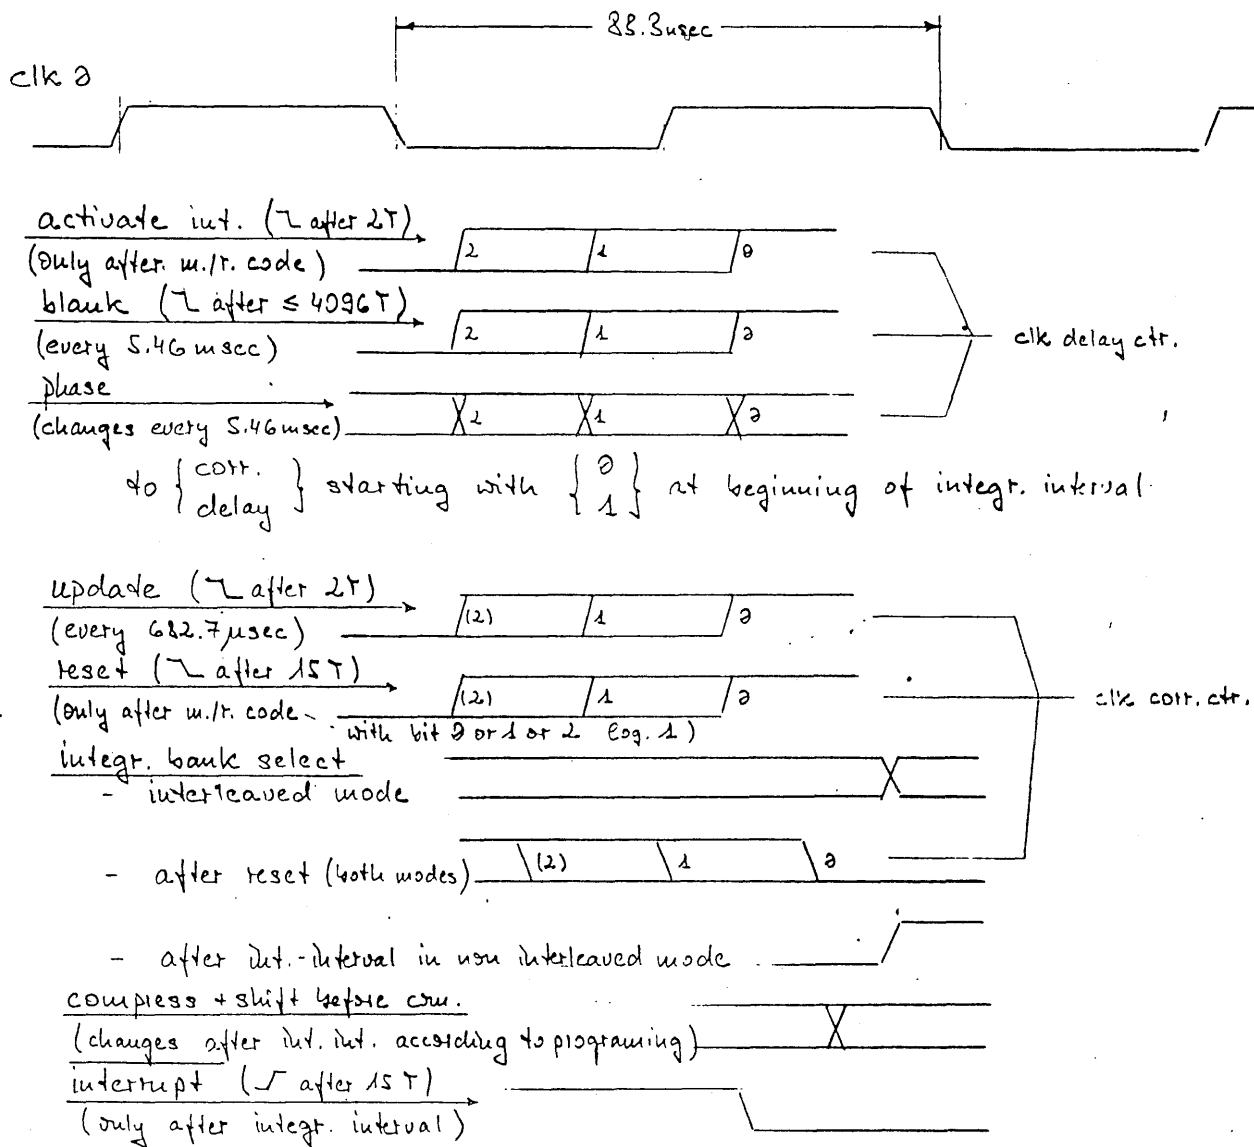 83.3nsec
clk 0
activate int. (⅂ after 2T)
(only after. m./r. code)
2 1 0
blank (⅂ after ≤ 4096T)
(every 5.46 msec)
2 1 0
clk delay ctr.
phase
(changes every 5.46 msec)
2 1 0
to { corr. delay } starting with { 0 1 } at beginning of integr. interval
update (⅂ after 2T)
(every 682.7 μsec)
(2) 1 0
reset (⅂ after 15T)
(only after m./r. code
(2) 1 0
clk corr. ctr.
with bit 0 or 1 or 2 log. 1)
integr. bank select
- interleaved mode
- after reset (both modes)
(2) 1 0
- after int.-interval in non interleaved mode
compress + shift before crm.
(changes after int. int. according to programing)
interrupt (⅃ after 15T)
(only after integr. interval)